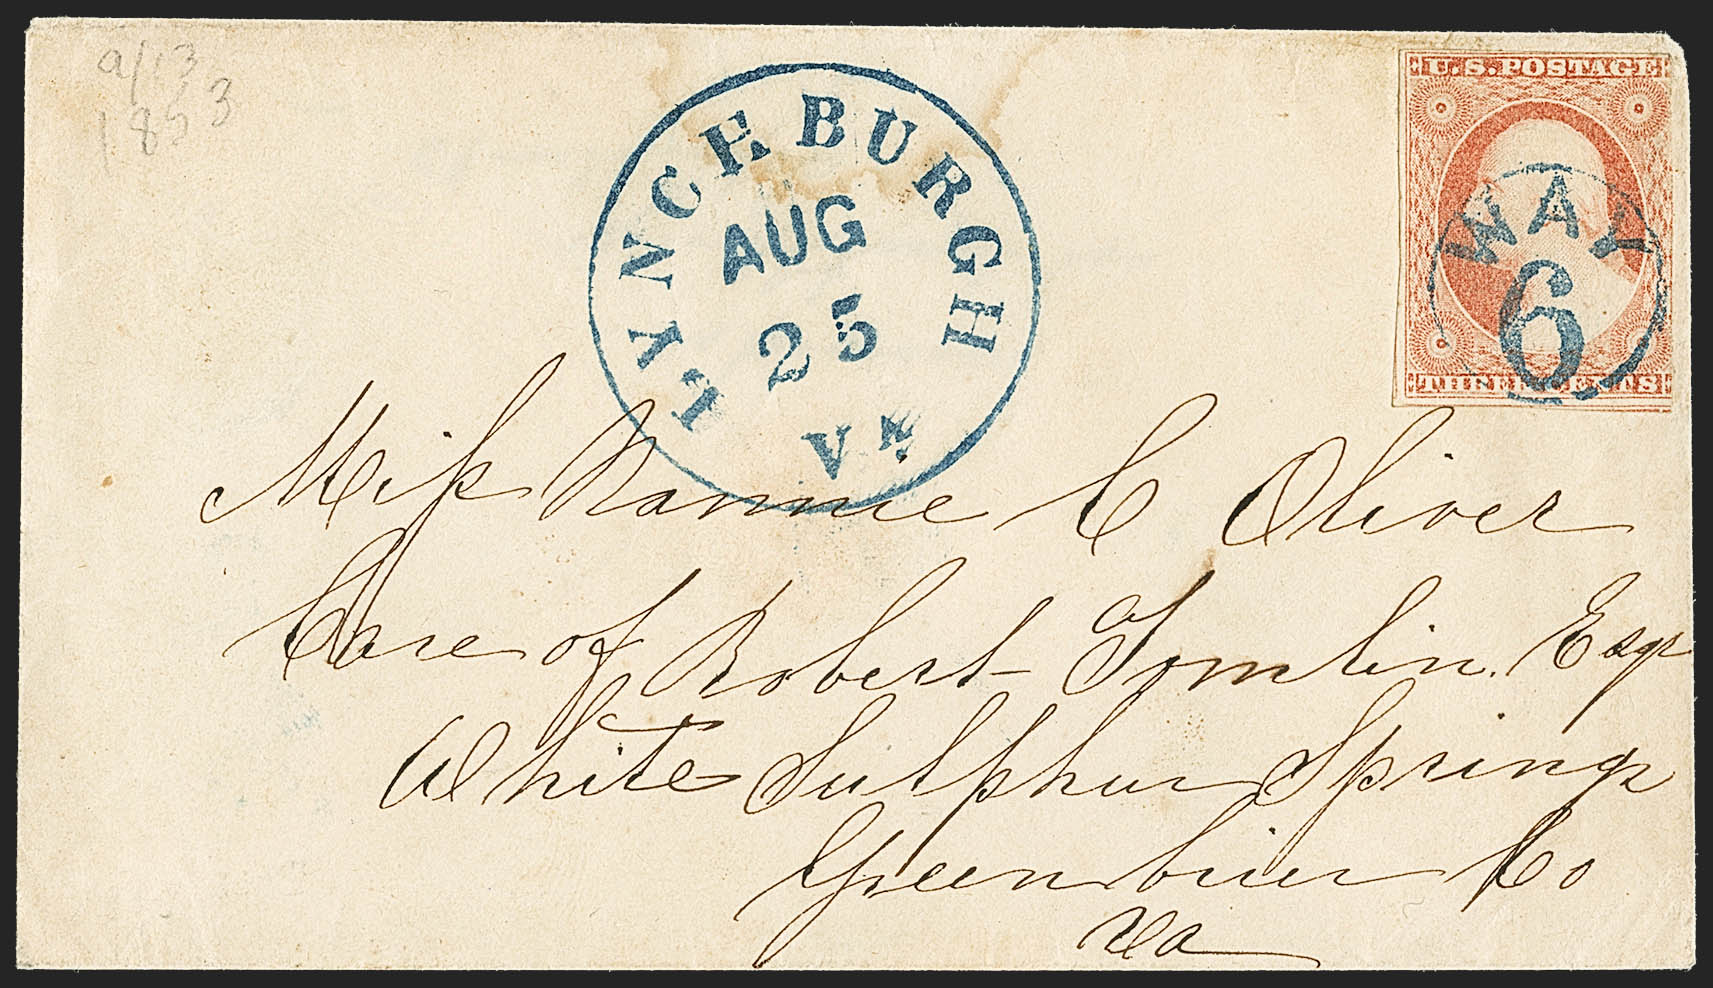 1853
LYNCHBURG H
AUG
25
VA
U.S. POSTAGE
WAY
6
THREE CENTS
Miſs Nannie C Oliver
Care of Robert Tomlin. Esqr
White Sulphur Springs
Greenbrier Co
Va